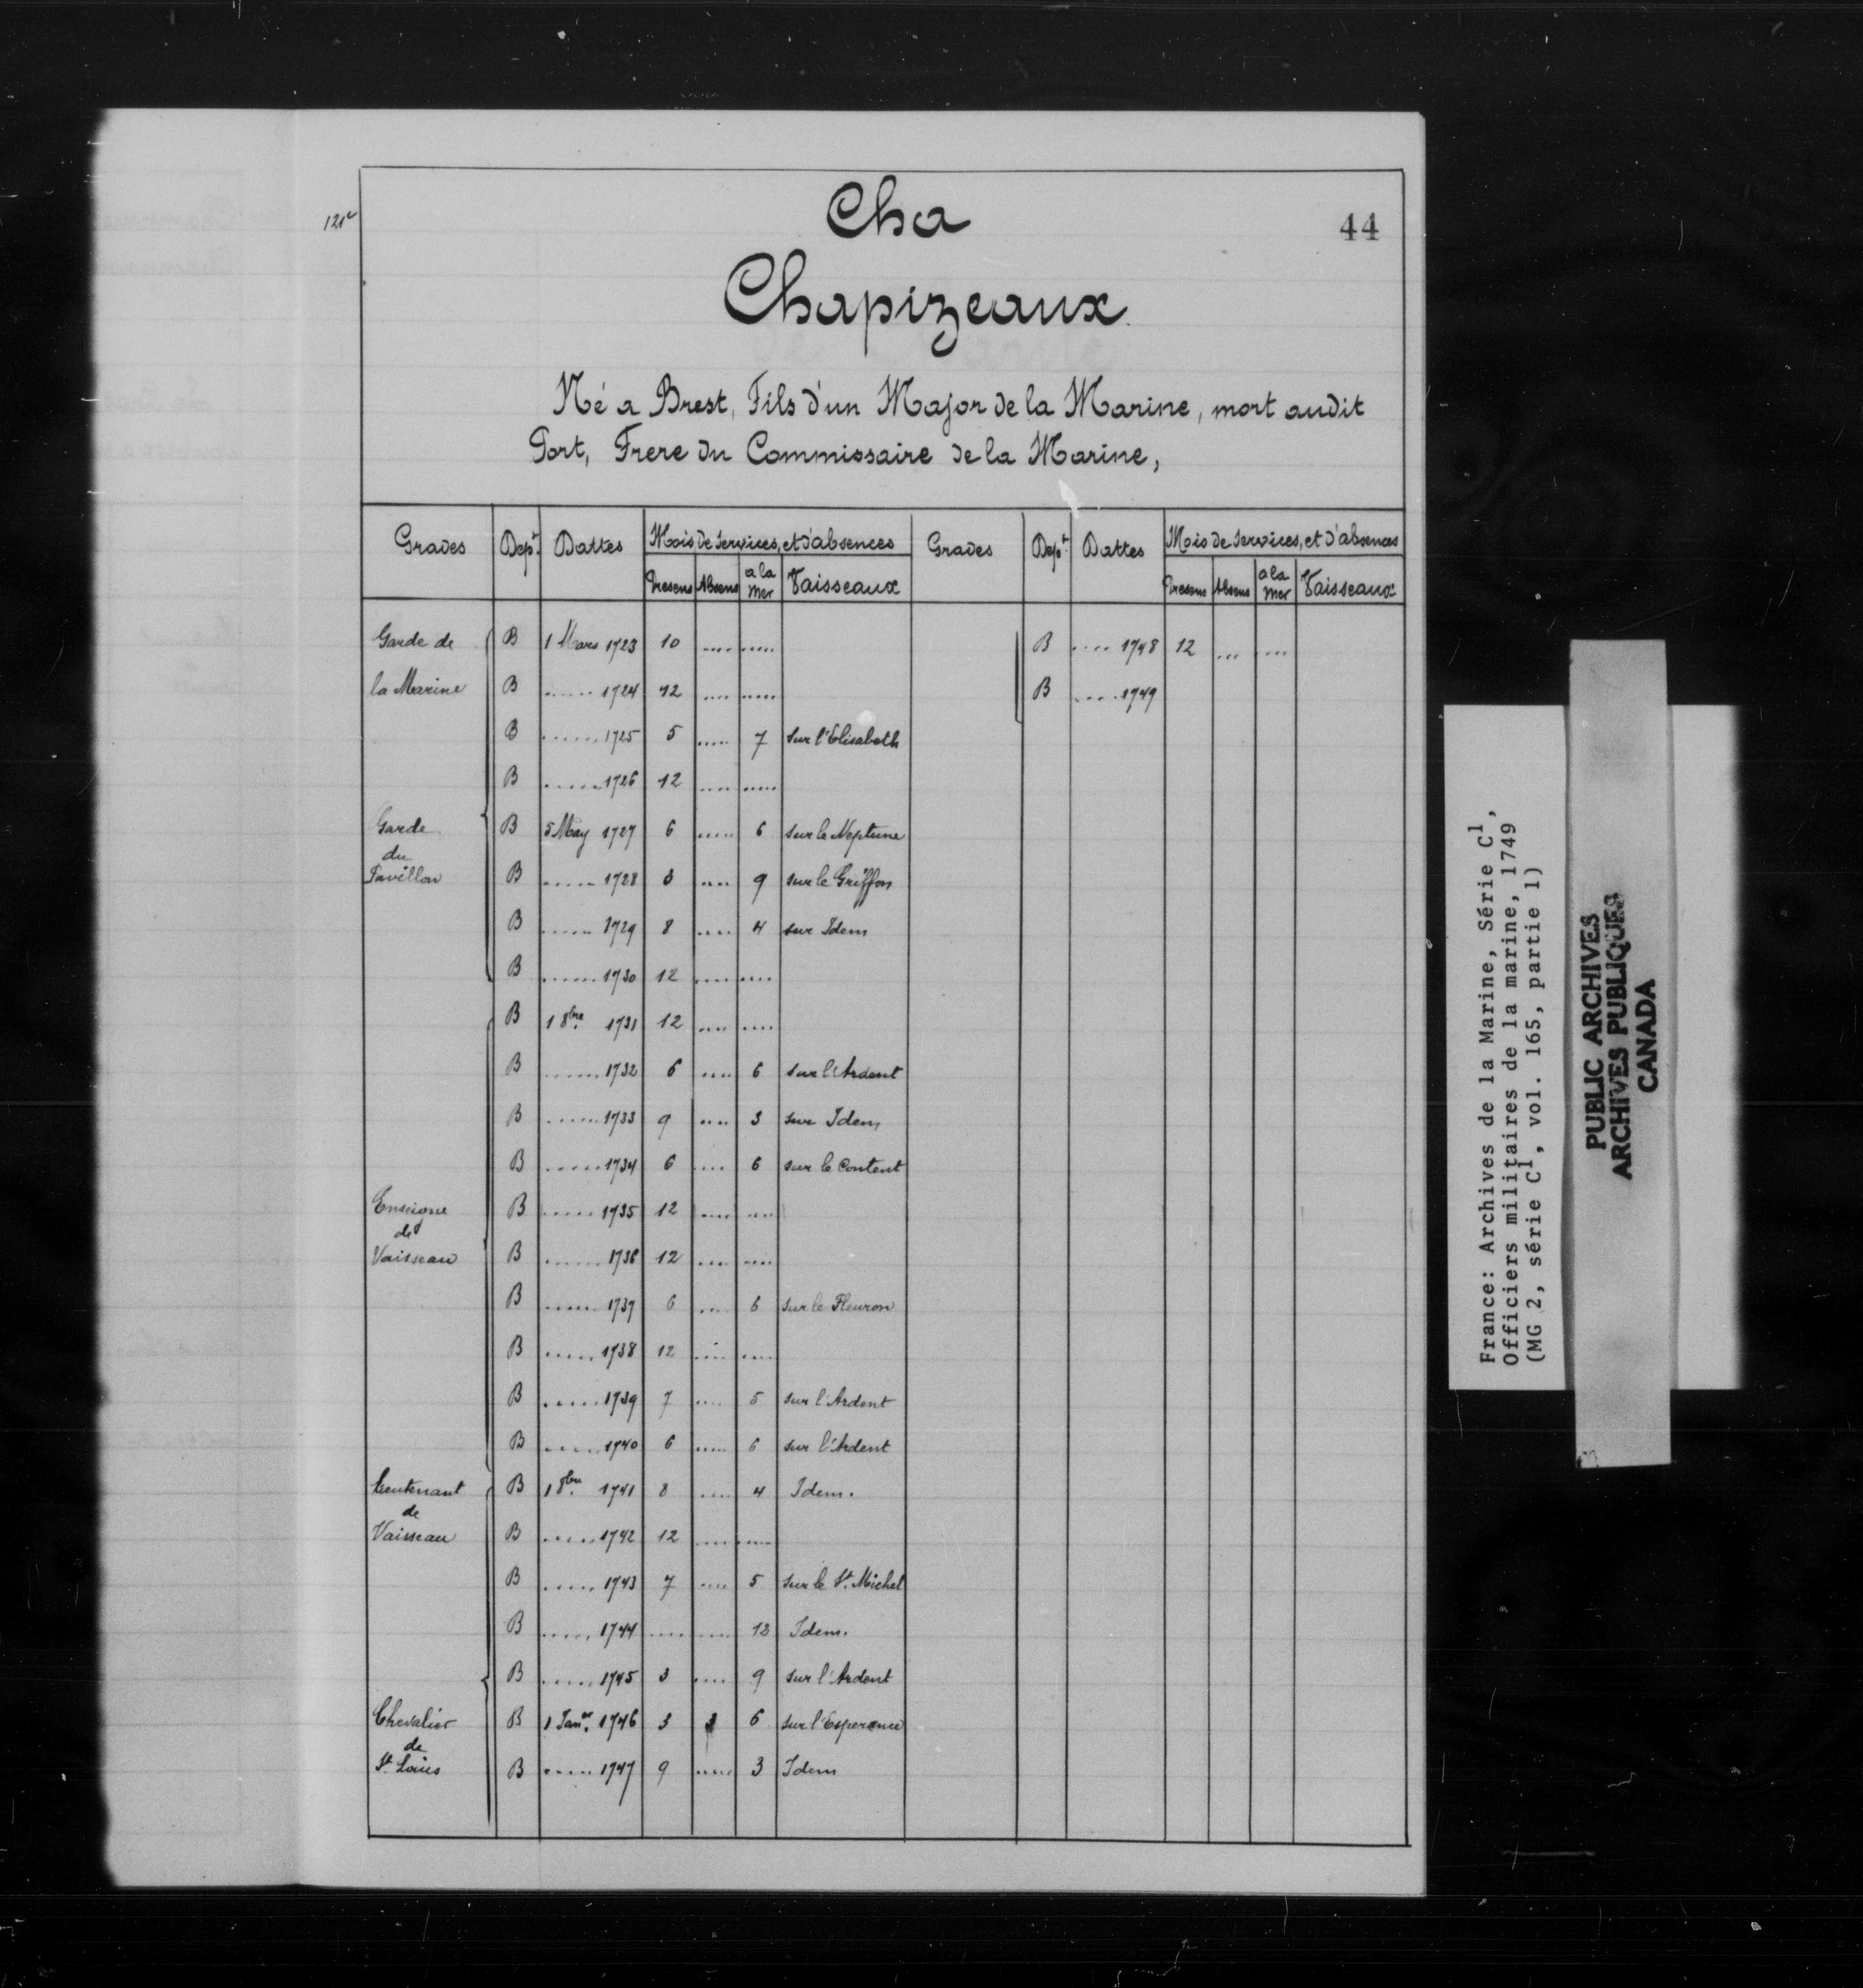 121v
Cha
44
Chapizeaux.
Né a Brest, Fils d'un Major de la Marine, mort audit
Port, Frere du Commissaire de la Marine,
Grades Dept. Dattes Mois de services, et d'absences Grades Dept. Dattes Mois de services, et d'absences
Presens Absens a la Mer Vaisseaux Presens Absens a la Mer Vaisseaux
Garde de B 1 Mars 1723 10 .... ..... B .... 1748 12 ... ....
la Marine B ...... 1724 12 .... ..... B .... 1749
B ...... 1725 5 ..... 7 sur l'Elisabeth
B ...... 1726 12 .... .....
Garde B 5 May 1727 6 ..... 6 sur le Neptune
du
Pavillon B ...... 1728 3 .... 9 sur le Griffon
B ...... 1729 8 .... 4 sur Idem
B ...... 1730 12 .... ....
B 1 8bre 1731 12 .... ....
B ...... 1732 6 .... 6 sur l'Ardent
B ...... 1733 9 .... 3 sur Idem
B ..... 1734 6 .... 6 sur le Content
Enseigne B ..... 1735 12 .... ....
de
Vaisseau B ...... 1736 12 .... ....
B ...... 1737 6 .... 6 sur le Fleuron
B ..... 1738 12 .... ....
B ..... 1739 7 .... 5 sur l'Ardent
B ..... 1740 6 ..... 6 sur l'Ardent
Lieutenant B 1 8bre 1741 8 .... 4 Idem.
de
Vaisseau B ..... 1742 12 .... ....
B ..... 1743 7 .... 5 sur le St. Michel
B ..... 1744 .... .... 12 Idem.
B ..... 1745 3 .... 9 sur l'Ardent
Chevalier B 1 Janer. 1746 3 3 6 sur l'Esperance
de
St. Louis B ..... 1747 9 ..... 3 Idem
France: Archives de la Marine, Série C1,
Officiers militaires de la marine, 1749
(MG 2, série C1, vol. 165, partie 1)
PUBLIC ARCHIVES
ARCHIVES PUBLIQUES
CANADA